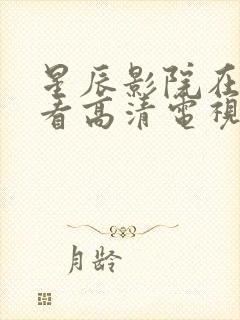 星辰影院在
看高清電視
月龄